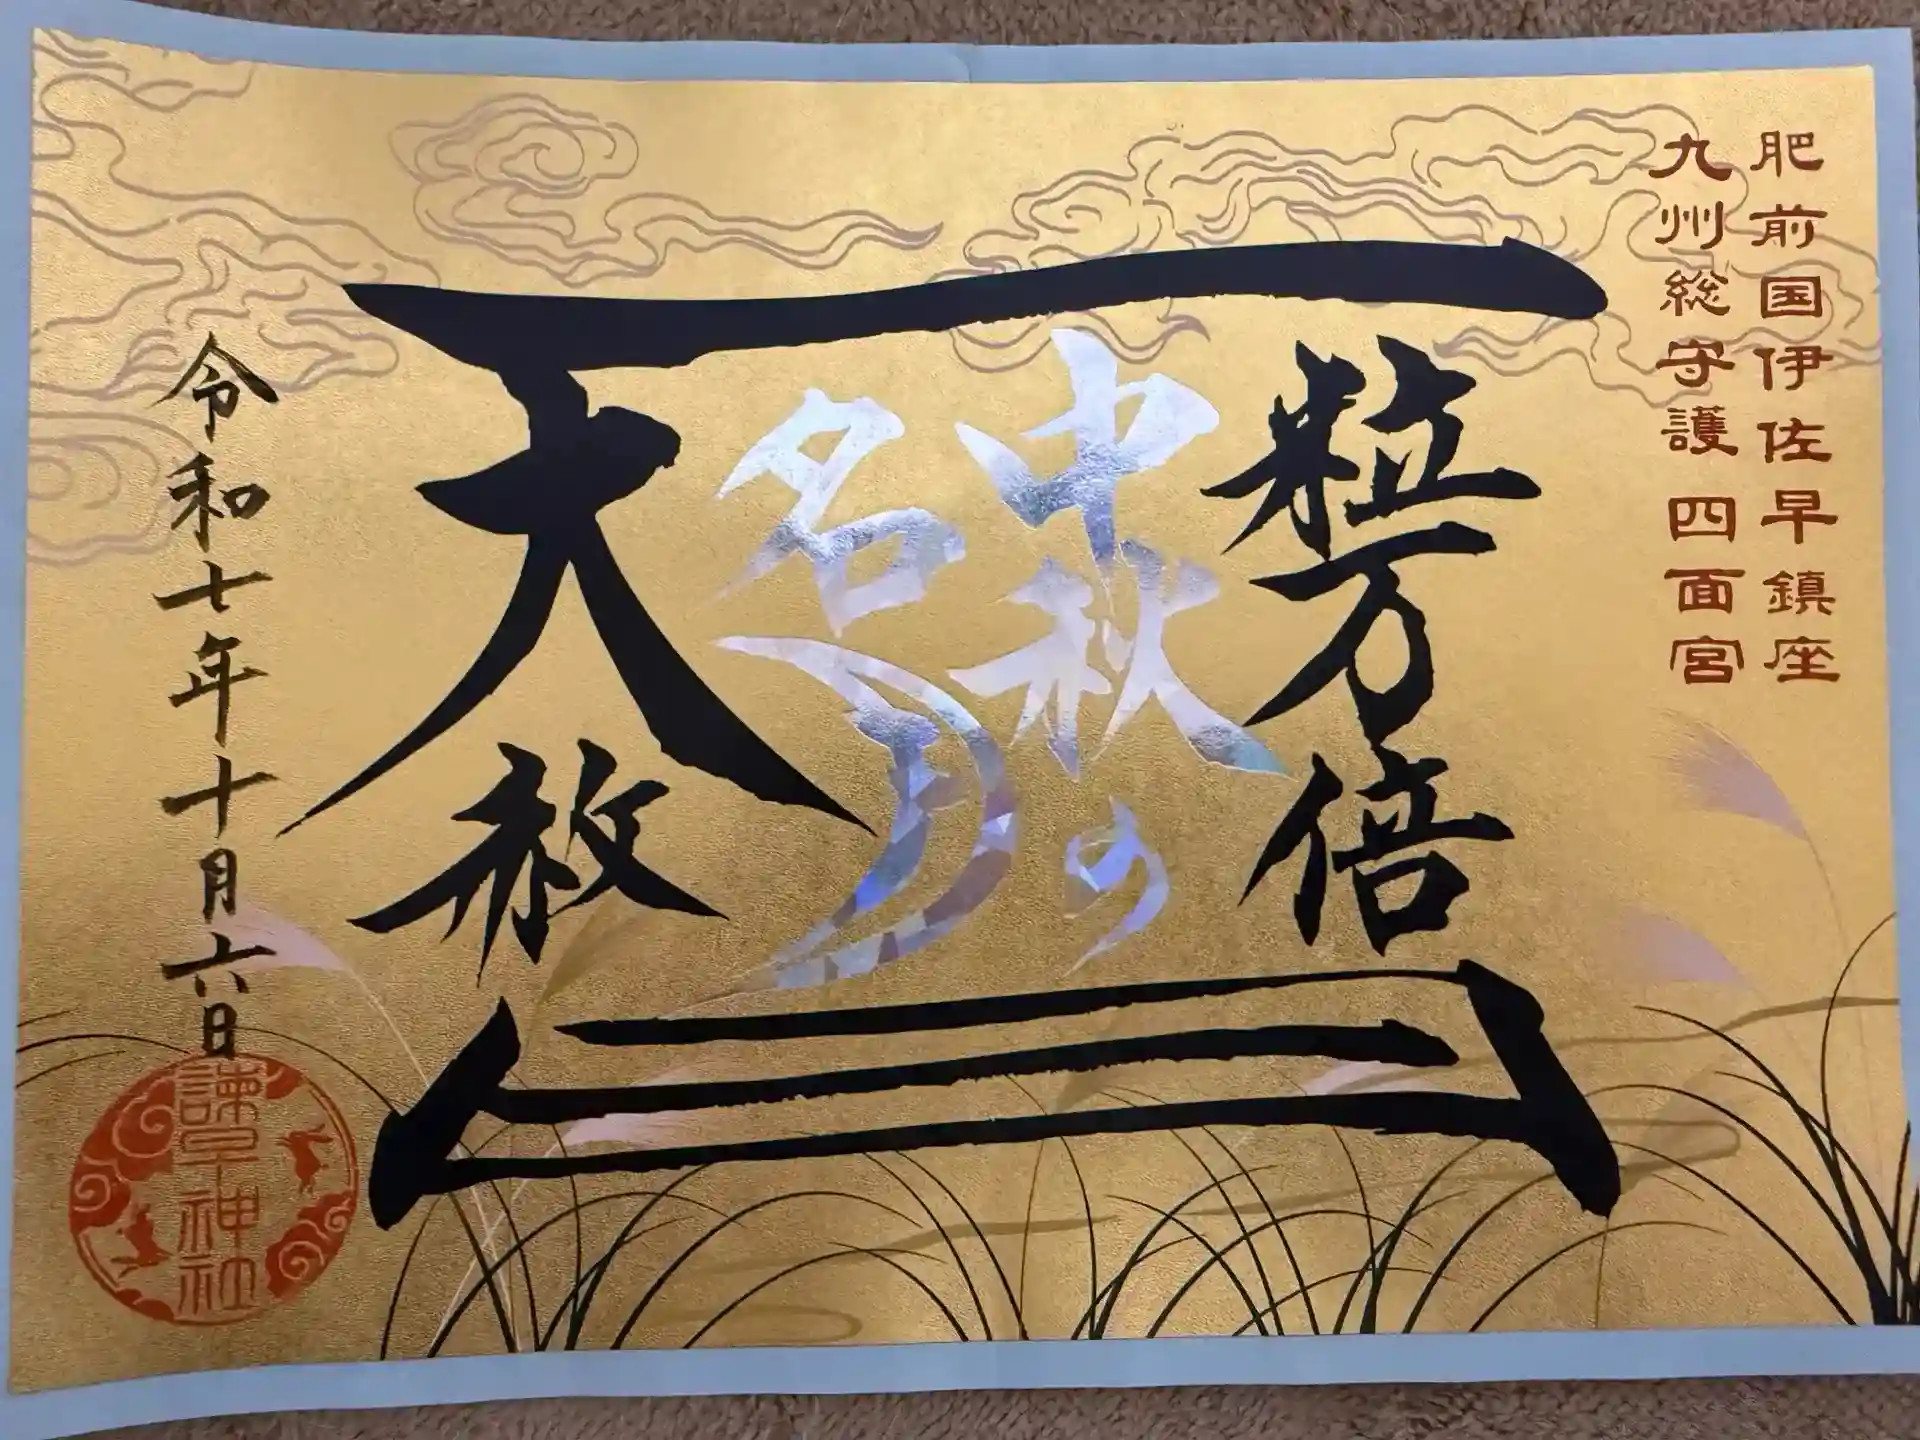 肥前国伊佐早鎮座
九州総守護 四面宮
一粒万倍日
中秋の
名月
天赦日
令和七年十月六日
諫早神社